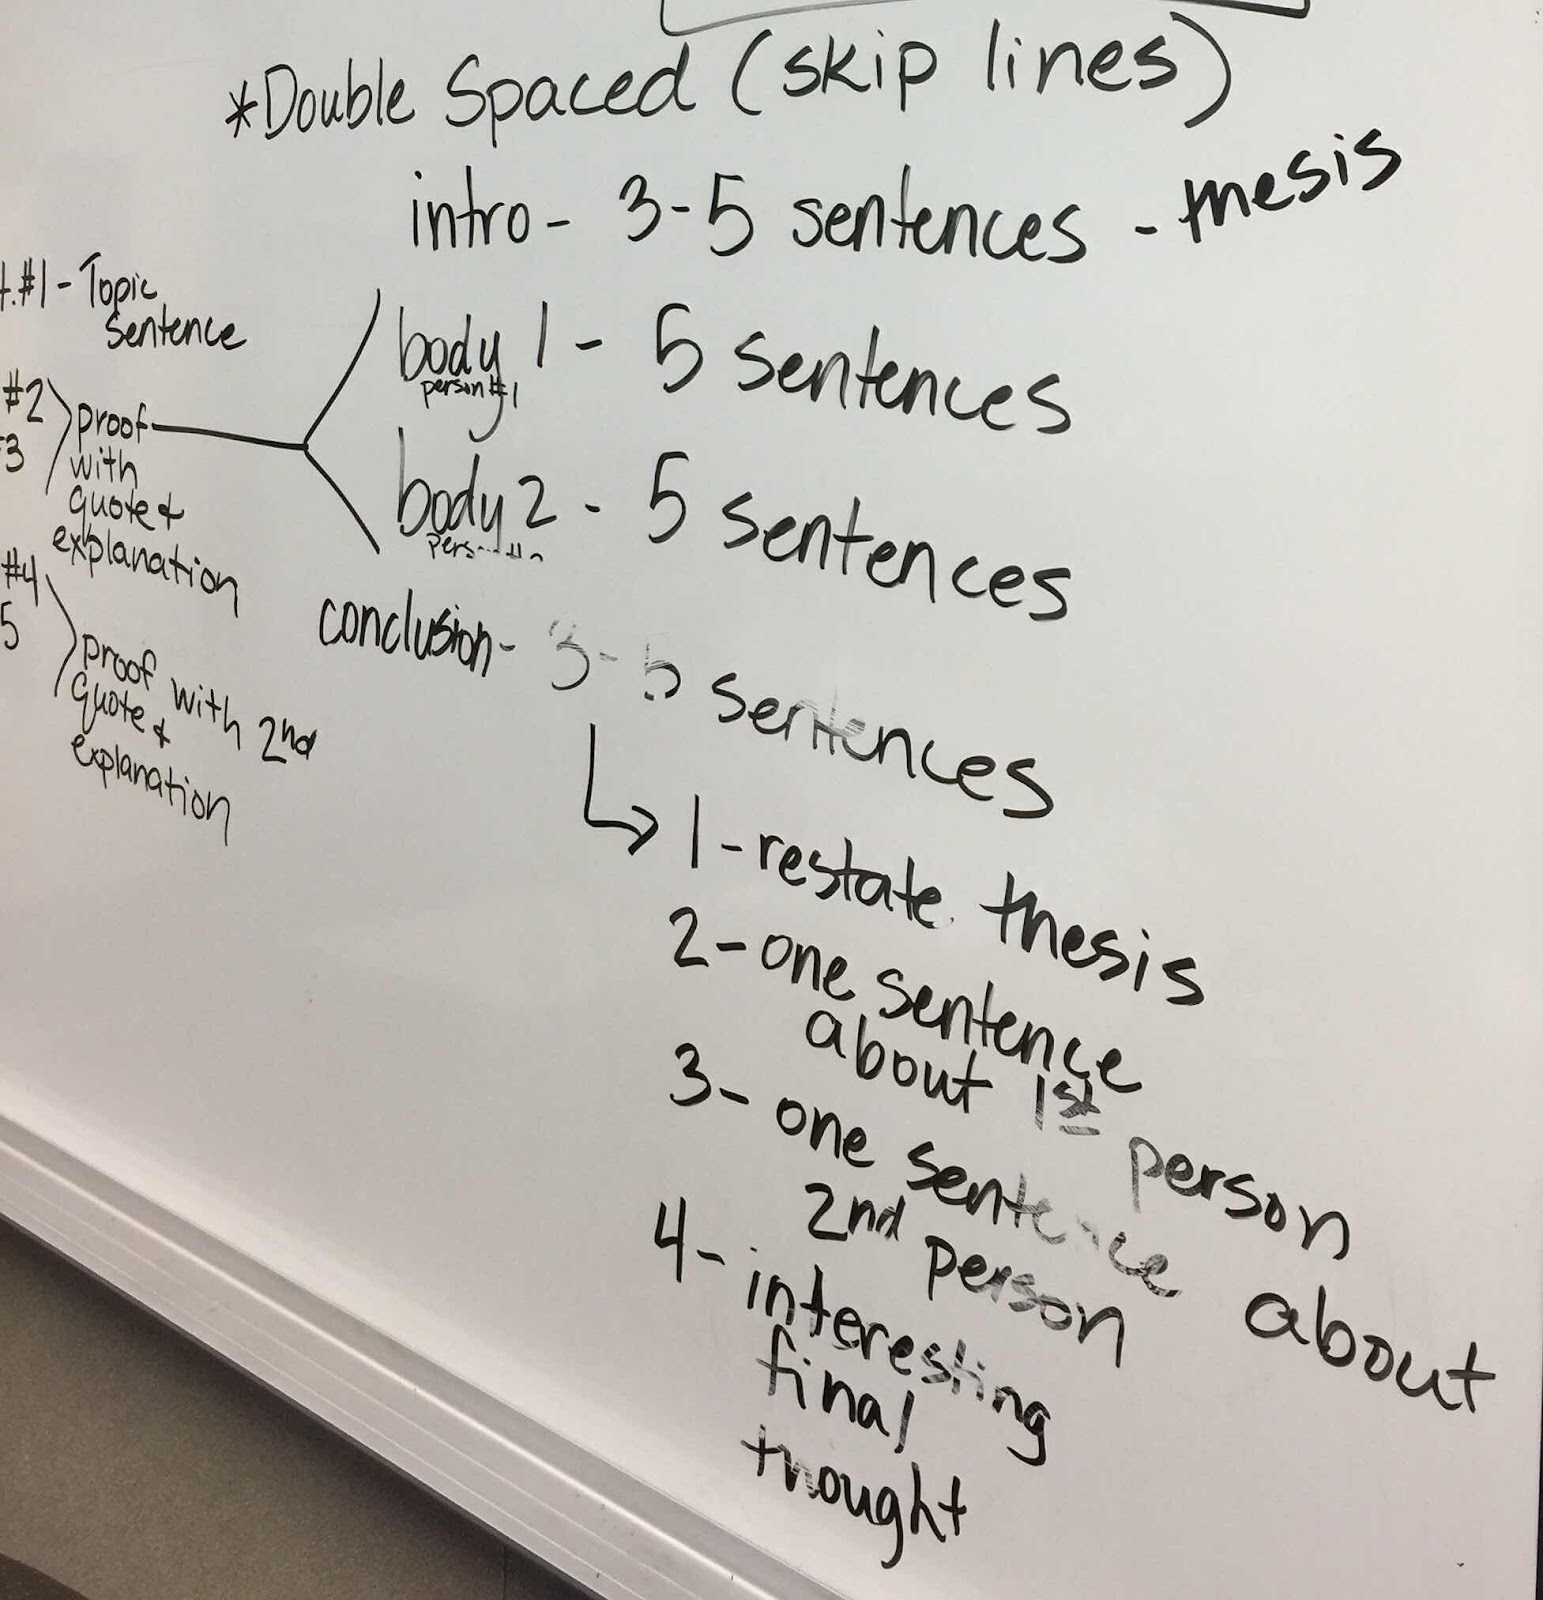 *Double Spaced (skip lines)
intro - 3-5 sentences - thesis
#1 - Topic
Sentence
body 1 - 5 sentences
person #1
#2
3
proof
with
quote &
explanation
body 2 - 5 sentences
#4
5
proof with 2nd
quote &
explanation
conclusion - 3-5 sentences
1 - restate thesis
2 - one sentence
about 1st person
3 - one sentence about
2nd person
4 - interesting
final
thought